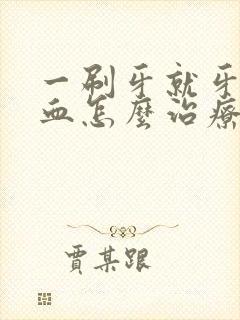 一刷牙就牙
血怎麼治療
賈某跟